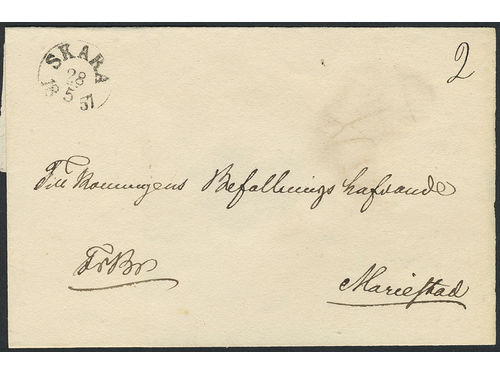 SKARA
28
5
18 57
2
Till Konungens Befallningshafvande
FrBr
Mariestad